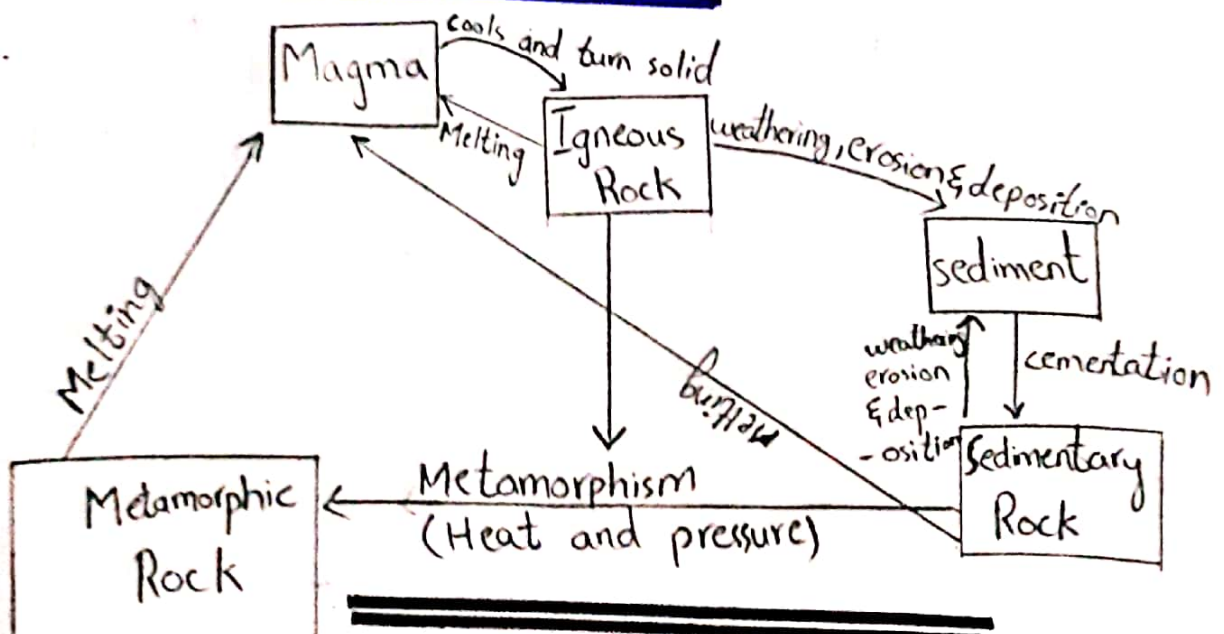 Magma
cools and turn solid
Melting
Igneous
Rock
weathering, erosion & deposition
sediment
weathering
erosion
& dep-
- osition
cementation
Sedimentary
Rock
Melting
Melting
Metamorphism
(Heat and pressure)
Metamorphic
Rock